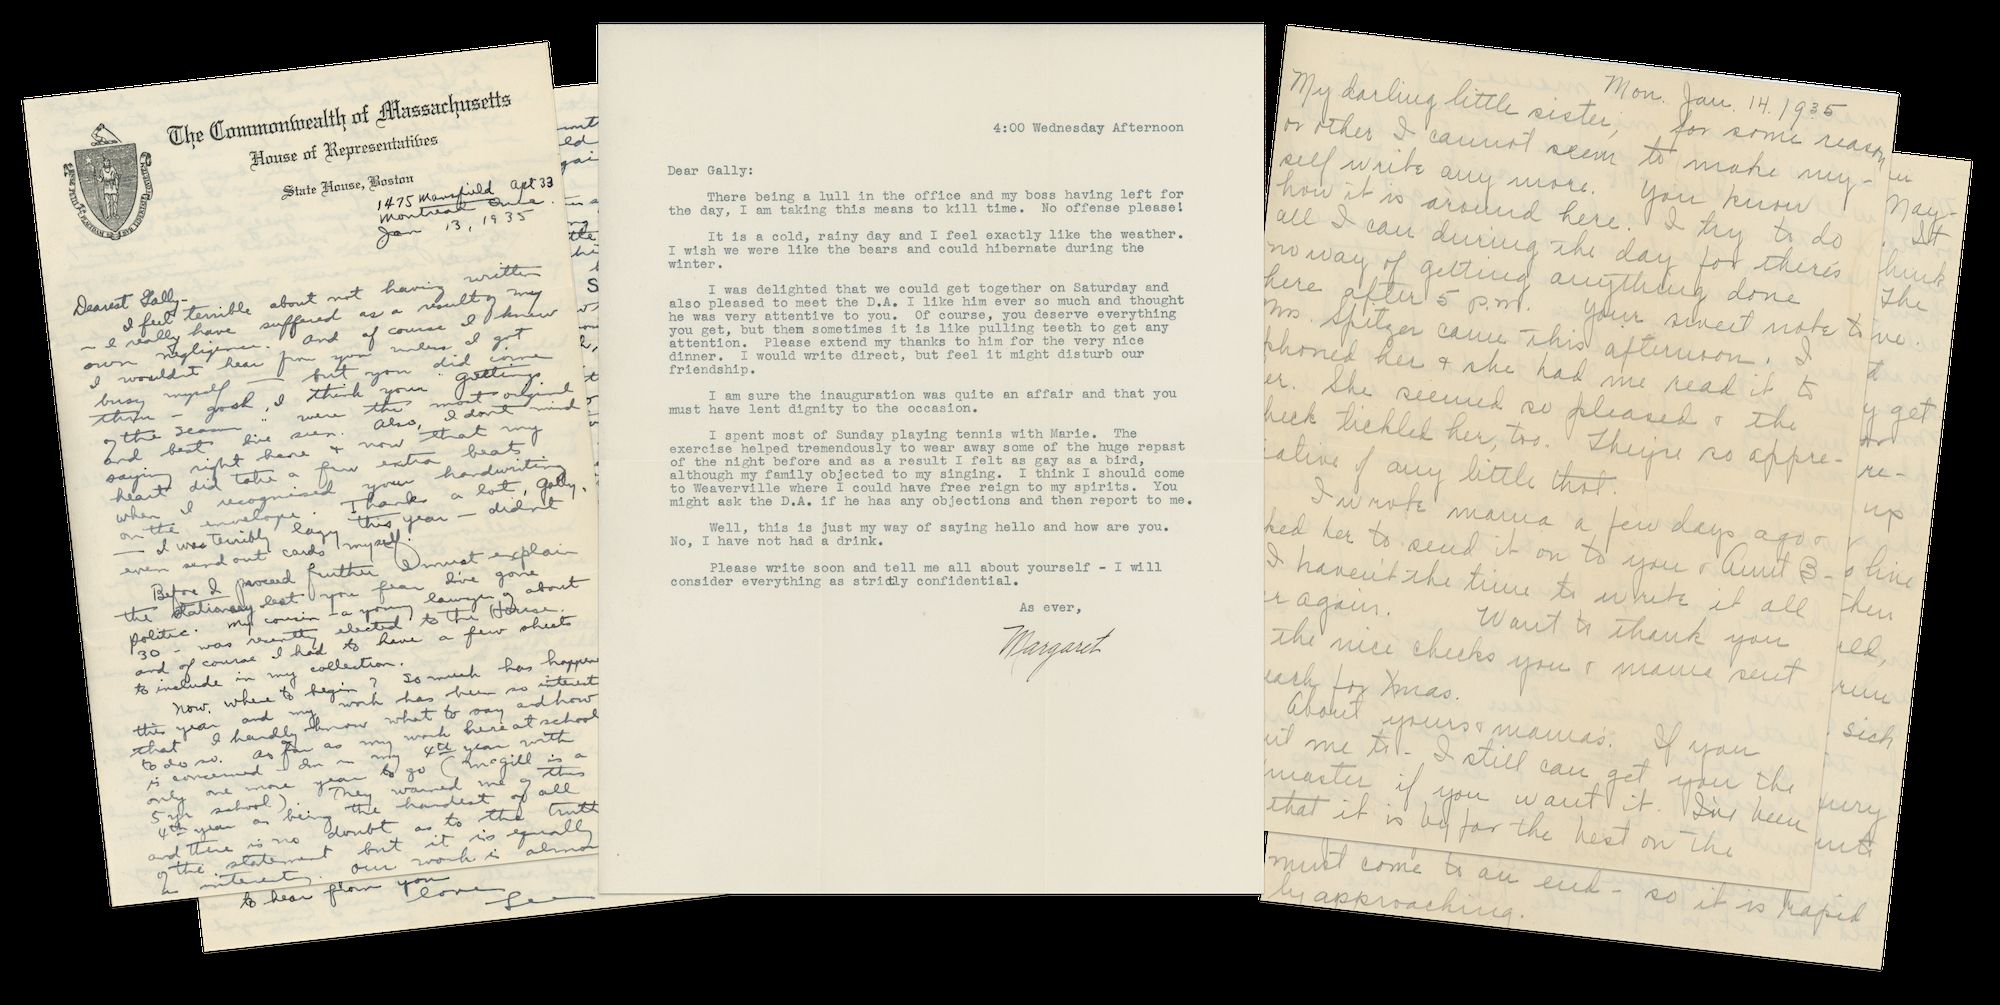 The Commonwealth of Massachusetts
House of Representatives
State House, Boston
1475 Mansfield Apt 33
Montreal Que.
Jan 13, 1935
Dearest Gally -
I feel terrible about not having written
- I really have suffered as a result of my
own negligence. And of course I knew
I wouldn't hear from you unless I got
busy myself - but you did come
thru - gosh, I think your "greetings
of the season" were the most original
and best I've seen. Also, I don't mind
saying right here & now that my
heart did take a few extra beats
when I recognised your handwriting
on the envelope. Thanks a lot, Gally,
- I was terribly lazy this year - didn't
even send out cards myself.
Before I proceed further I must explain
the stationary lest you fear I've gone
politic. My cousin - a young lawyer of about
30 - was recently elected to the House.
and of course I had to have a few sheets
to include in my collection.
Now, where to begin? So much has happen
this year and my work has been so interest
that I hardly know what to say and how
to do so. As far as my work here at school
is concerned - I'm in my 4th year with
only one more year to go (McGill is a
5 yr school). They warned me of this
4th year as being the hardest of all
and there is no doubt as to the truth
of the statement but it is equally
interesting. Our work is almos
to hear from you
Love
Lee
4:00 Wednesday Afternoon
Dear Gally:
There being a lull in the office and my boss having left for
the day, I am taking this means to kill time. No offense please!
It is a cold, rainy day and I feel exactly like the weather.
I wish we were like the bears and could hibernate during the
winter.
I was delighted that we could get together on Saturday and
also pleased to meet the D.A. I like him ever so much and thought
he was very attentive to you. Of course, you deserve everything
you get, but them sometimes it is like pulling teeth to get any
attention. Please extend my thanks to him for the very nice
dinner. I would write direct, but feel it might disturb our
friendship.
I am sure the inauguration was quite an affair and that you
must have lent dignity to the occasion.
I spent most of Sunday playing tennis with Marie. The
exercise helped tremendously to wear away some of the huge repast
of the night before and as a result I felt as gay as a bird,
although my family objected to my singing. I think I should come
to Weaverville where I could have free reign to my spirits. You
might ask the D.A. if he has any objections and then report to me.
Well, this is just my way of saying hello and how are you.
No, I have not had a drink.
Please write soon and tell me all about yourself - I will
consider everything as strictly confidential.
As ever,
Margaret
Mon. Jan. 14. 1935
My darling little sister, for some reason
or other I cannot seem to make my-
self write any more. You know
how it is around here. I try to do
all I can during the day for there's
no way of getting anything done
here after 5 p.m. Your sweet note to
Mrs. Spitzer came this afternoon. I
phoned her & she had me read it to
er. She seemed so pleased & the
heck tickled her, too. They're so appre-
ciative of any little thot.
I wrote mama a few days ago &
ked her to send it on to you & Aunt B -
I haven't the time to write it all
r again. Want to thank you
the nice checks you & mama sent
each for Xmas.
About yours & mamas. If you
it me to - I still can get you the
master if you want it. I've been
that it is by far the best on the
must come to an end - so it is rapid
ly approaching.